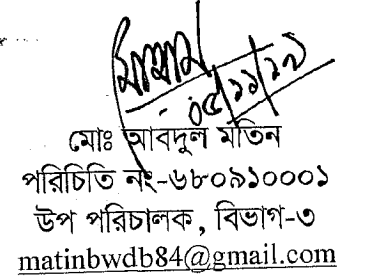 ০৫/১১/১৯
মোঃ আবদুল মতিন
পরিচিতি নং-৬৮০৯১০০০১
উপ পরিচালক, বিভাগ-৩
matinbwdb84@gmail.com